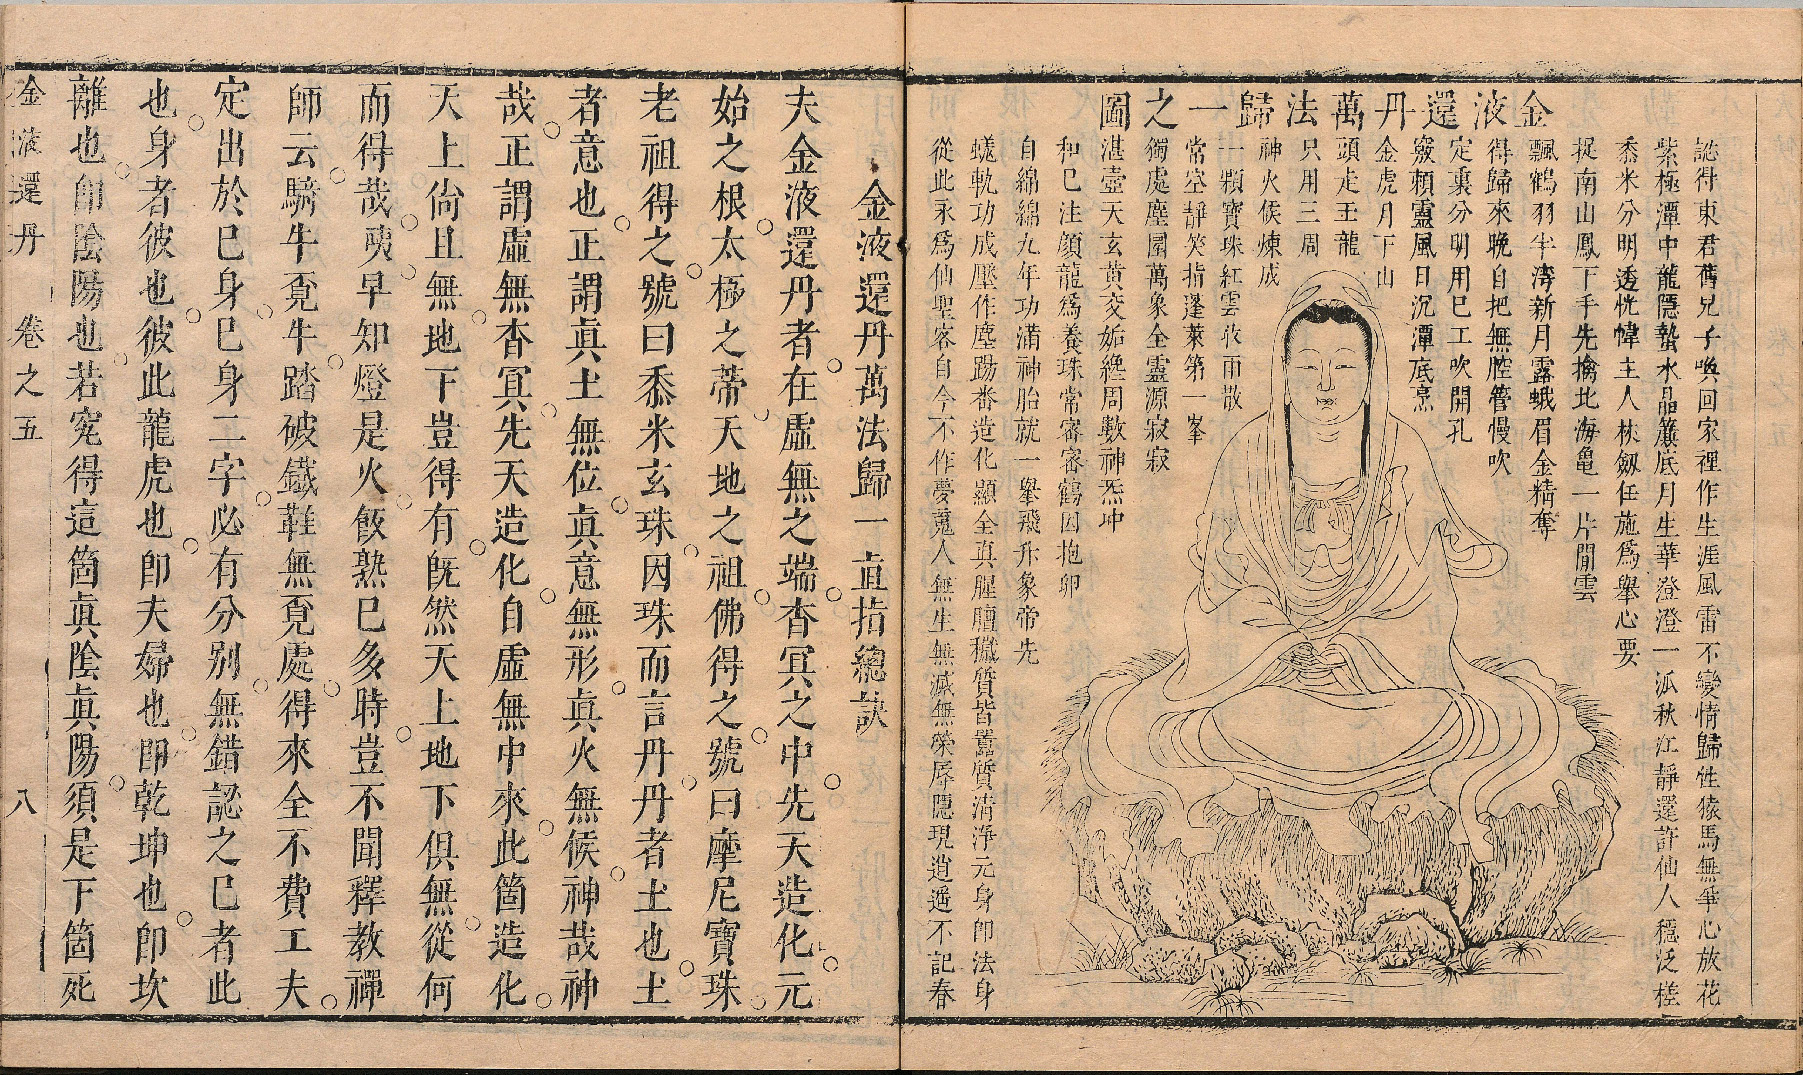 金液還丹萬法歸一之圖
認得東君舊兄子喚回家裡作生涯風雷不變情歸性猿馬無爭心放花
紫極潭中龍隱蟄水晶簾底月生華澄澄一派秋江靜還許仙人穩泛槎
黍米分明透恍幃主人林劔任施為舉心要
捉南山鳳下手先擒北海亀一片閒雲
飄鶴羽半濤新月露蛾眉金精奪
得歸來晚自把無腔管慢吹
定裏分明用巳工吹開孔
竅賴靈風日沉潭底烹
金虎月下山
頭走玉龍
只用三周
神火候煉成
一顆寶珠紅雲收雨散
常空靜笑指蓬萊第一峯
獨處塵圜萬象全靈源寂寂
湛壺天玄黄交姤纔周數神炁坤
和巳注顔龍為養珠常審審鶴因抱卵
自綿綿九年功滿神胎就一舉飛升象帝先
蟻軌功成壓作塵踢番造化顯全真腥膻穢質皆囂質清淨元身即法身
從此永為仙聖客自今不作夢䰟人無生無滅無榮辱隱現逍遥不記春
金液還丹萬法歸一直指總訣
夫金液還丹者在虛無之端杳冥之中先天造化元
始之根太極之蒂天地之祖佛得之號曰摩尼寶珠
老祖得之號曰黍米玄珠因珠而言丹丹者土也土
者意也正謂眞土無位眞意無形眞火無候神哉神
哉正謂虛無杳冥先天造化自虛無中來此箇造化
天上尙且無地下豈得有旣然天上地下俱無從何
而得哉噢早知燈是火飯熟巳多時豈不聞釋教禪
師云騎牛覓牛踏破鐵鞋無覓處得來全不費工夫
定出於巳身巳身二字必有分别無錯認之巳者此
也身者彼也彼此龍虎也卽夫婦也卽乾坤也卽坎
離也卽陰陽也若究得這箇眞陰眞陽須是下箇死
金液還丹 卷之五 八